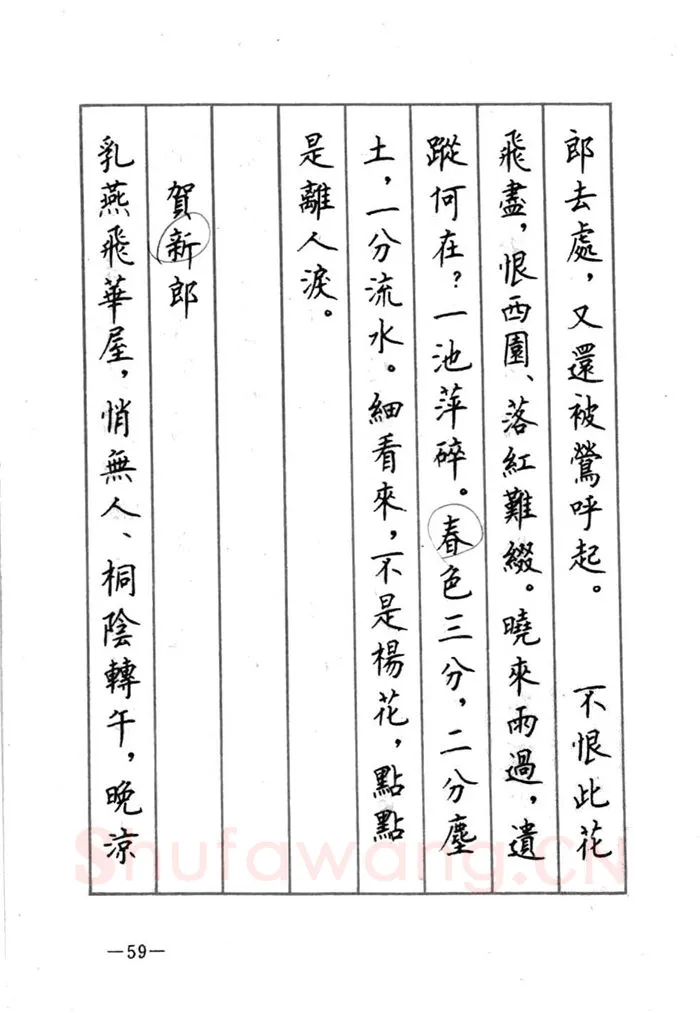 郎去處，又還被鶯呼起。　不恨此花
飛盡，恨西園、落紅難綴。曉來雨過，遺
蹤何在？一池萍碎。春色三分，二分塵
土，一分流水。細看來，不是楊花，點點
是離人淚。
賀新郎
乳燕飛華屋，悄無人、桐陰轉午，晚涼
Shufawang.CN
—59—